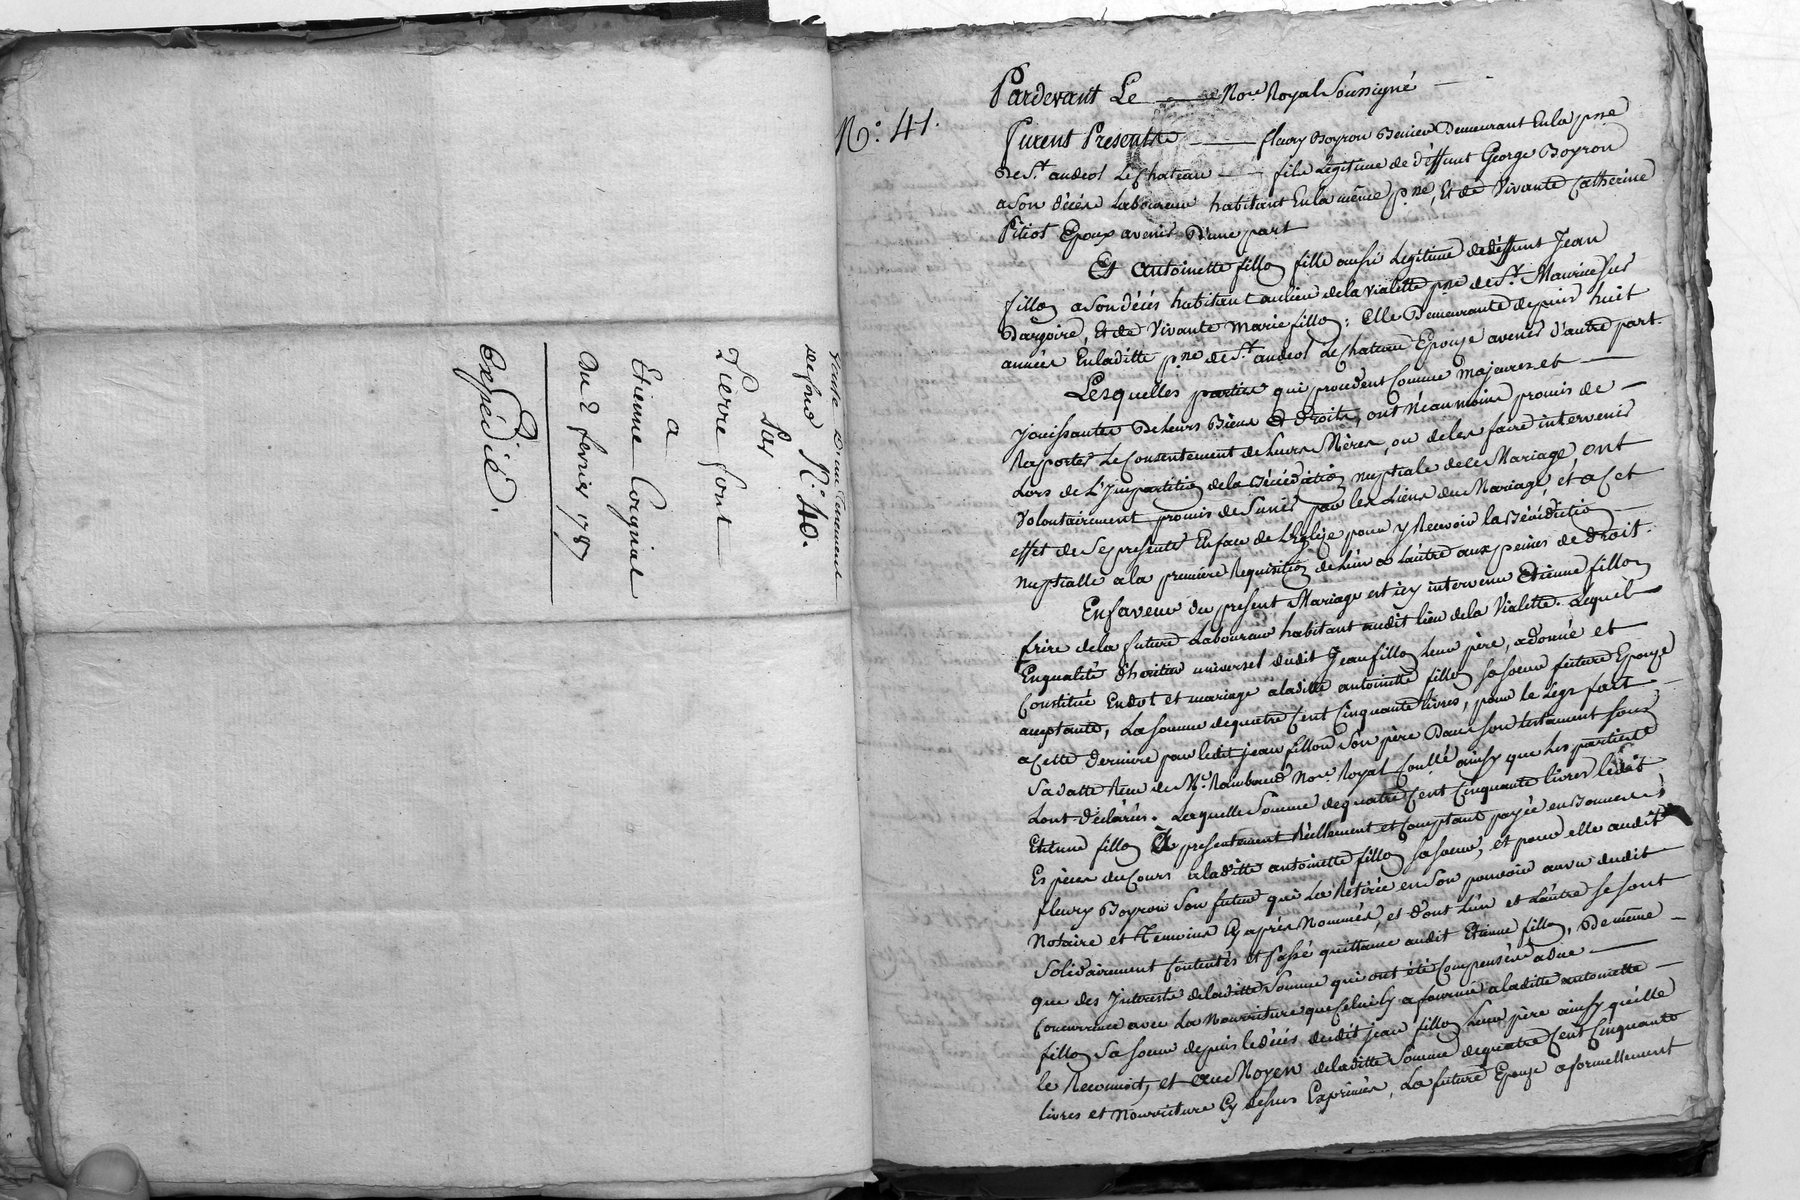 Vente D'un tenement
de fond N.° 40.
Par
Pierre font
a
Etienne Corgnet
Du 2 fevrier 1787
Expédié.
N.° 41.
Pardevant Le Nore. Royal Soussigné
furent Presents fleury Boyron Demeurant En la psse
De St. andeol Le Chateau fils Legitime de déffunt George Boyron
a son décés Laboureur habitant En la même psse, Et de Vivante Catherine
Pitiot Epoux avenir D'une part
Et Antoinette fillon fille aussi Legitime de déffunt Jean
fillon a son décés habitant au lieu de la Vialette psse de St. Maurice sur
Dargoire, Et de Vivante Marie fillon; Elle Demeurante depuis huit
années En laditte psse de St. andeol Le Chateau Epouse avenir d'autre part.
Lesquelles parties qui procedent Comme Majeures et
Jouissantes De Leurs Biens et droits, ont Néanmoins promis de
Raporter Le Consentement de Leurs Mères, ou de les faire intervenir
Lors de L'Impartition de la Bénédiction nuptiale de ce Mariage, ont
Volontairement promis de s'unir par les Liens du Mariage, et a Cet
effet de se presenter En face de L'Eglise pour y Recevoir la Bénédiction
Nuptialle a la premiere Requisition de L'un a Lautre aux peines de droit.
En faveur du present Mariage est icy intervenu Etienne fillon
frère de la future Laboureur habitant audit lieu de la Vialette. Lequel
En qualité d'heritier universel dudit Jean fillon Leur père, a donné et
Constitué En dot et mariage a laditte antoinette fillon sa soeur future Epouse
acceptante, La somme de quatre Cent Cinquante livres, pour le Legs fait
a Cette derniere par ledit jean fillon Son père Dans son testament sous
Sa datte Reçu de Me. Rambaud Nore. Royal ainsy que Les parties
L'ont déclarés. Laquelle Somme de quatre Cent Cinquante livres ledit
Etienne fillon a presentement Réellement et Comptant payée en Bonnes
Espèces du Cours a laditte antoinette fillon sa soeur, et pour elle audit
fleury Boyron Son futur qui La Rétirée en Son pouvoir au vu dudit
Notaire et Temoins Cy après Nommés, et d'ont L'un et L'autre se sont
Solidairement Contentés et Passé quittance audit Etienne fillon, De même
que des Interests de laditte Somme qui ont été Compensés a due
Concurrence avec La Nourriture que Celui Cy a fournie a laditte antoinette
fillon Sa Soeur depuis le décés dudit jean fillon Leur père ainsy qu'elle
le Reconnoit, et au Moyen de laditte Somme de quatre Cent Cinquante
livres et Nourriture Cy dessus Exprimés, La future Epouse a formellement